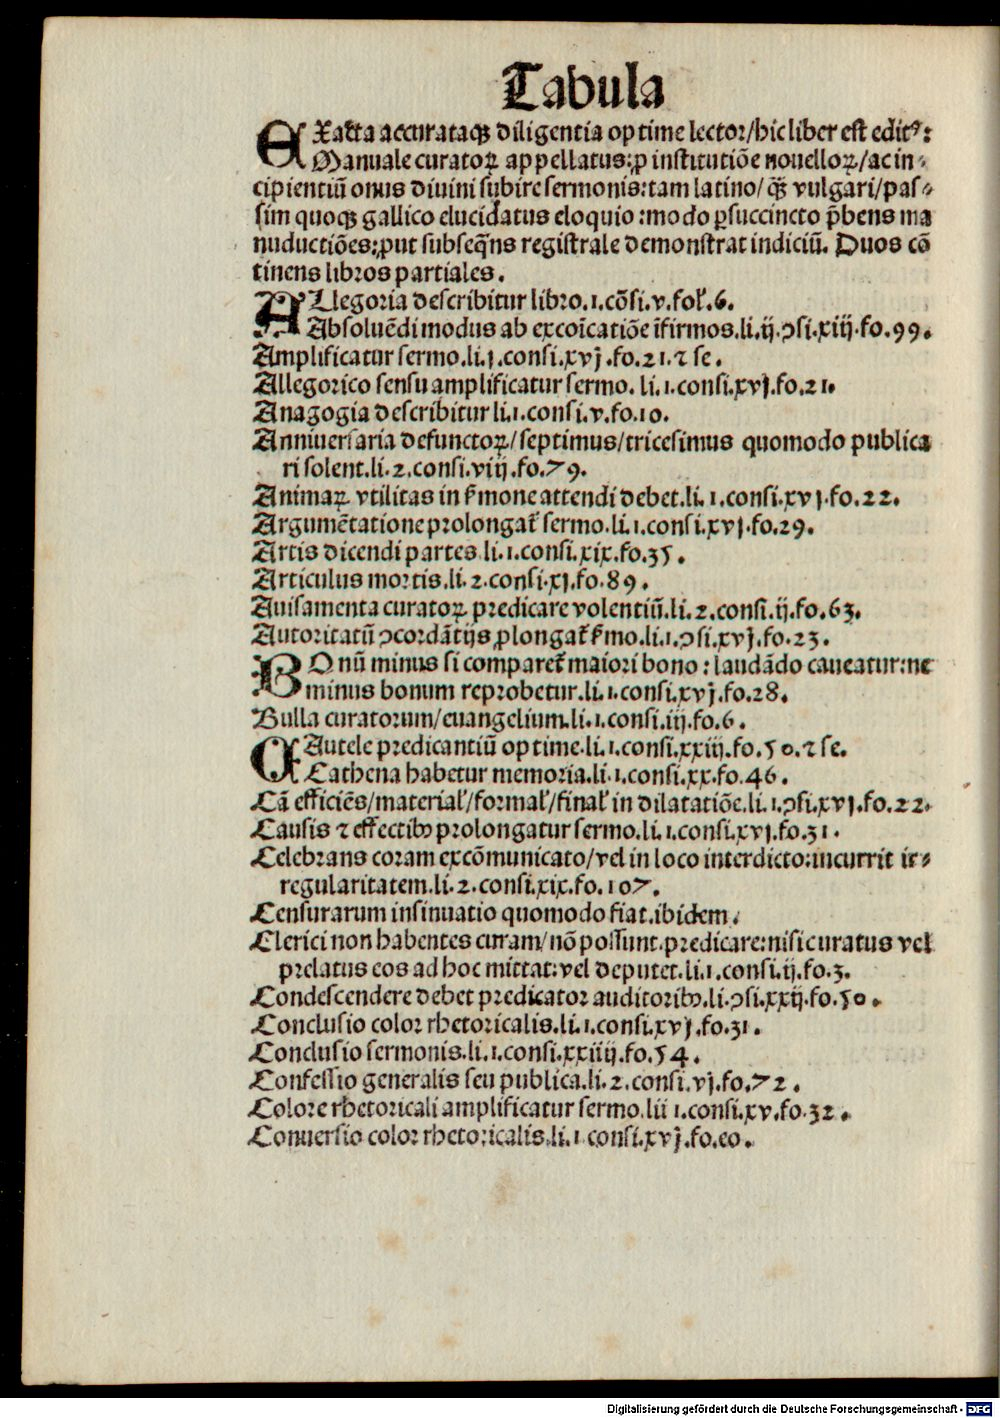 Tabula
EXacta accurataqꝫ diligentia optime lector/hic liber est editꝰ:
Manuale curatoꝝ appellatus:ꝓ institutiōe nouelloꝝ/ac in⸗
cipientiū onus diuini subire sermonis:tam latino/qꝫ vulgari/pas⸗
sim quoqꝫ gallico elucidatus eloquio:modo ꝑsuccincto p̄bens ma
nuductiōes:ꝓut subseq̄ns registrale demonstrat indiciū. Duos cō
tinens libros partiales.
ALlegoria describitur libro.1.cōsi.v.fol̄.6.
Absoluēdi modus ab excoīcatiōe īfirmos.li.ij.ↄsi.xiij.fo.99.
Amplificatur sermo.li.j.consi.xvj.fo.21.⁊ se.
Allegorico sensu amplificatur sermo. li.1.consi.xvj.fo.21.
Anagogia describitur li.1.consi.v.fo.10.
Anniuersaria defunctoꝝ/septimus/tricesimus quomodo publica
ri solent.li.2.consi.viij.fo.79.
Animaꝝ vtilitas in s̄mone attendi debet.li.1.consi.xvj.fo.22.
Argumētatione prolongat̄ sermo.li.1.consi.xvj.fo.29.
Artis dicendi partes.li.1.consi.xix.fo.35.
Articulus mortis.li.2.consi.xj.fo.89.
Auisamenta curatoꝝ predicare volentiū.li.2.consi.ij.fo.63.
Autoritatū ↄcordātijs ꝓlongat̄ s̄mo.li.1.ↄsi.xvj.fo.23.
BOnū minus si comparet̄ maiori bono:laudādo caueatur:ne
minus bonum reprobetur.li.1.consi.xvj.fo.28.
Bulla curatorum/euangelium.li.1.consi.iij.fo.6.
CAutele predicantiū optime.li.1.consi.xxiij.fo.50.⁊ se.
Cathena habetur memoria.li.1.consi.xx.fo.46.
Cā efficiēs/material̄/formal̄/final̄ in dilatatiōe.li.1.ↄsi.xvj.fo.22.
Causis ⁊ effectibꝰ prolongatur sermo.li.1.consi.xvj.fo.31.
Celebrans coram excōmunicato/vel in loco interdicto:incurrit ir⸗
regularitatem.li.2.consi.xix.fo.107.
Censurarum insinuatio quomodo fiat.ibidem.
Clerici non habentes curam/nō possunt.predicare:nisi curatus vel
prelatus eos ad hoc mittat:vel deputet.li.1.consi.ij.fo.3.
Condescendere debet predicator auditoribꝰ.li.ↄsi.xxij.fo.50.
Conclusio color rhetoricalis.li.1.consi.xvj.fo.31.
Conclusio sermonis.li.1.consi.xxiiij.fo.54.
Confessio generalis seu publica.li.2.consi.vj.fo.72.
Colore rhetoricali amplificatur sermo.lii 1.consi.xv.fo.32.
Conuersio color rhetoricalis.li.1 consi.xvj.fo.eo.
Digitalisierung gefördert durch die Deutsche Forschungsgemeinschaft - DFG